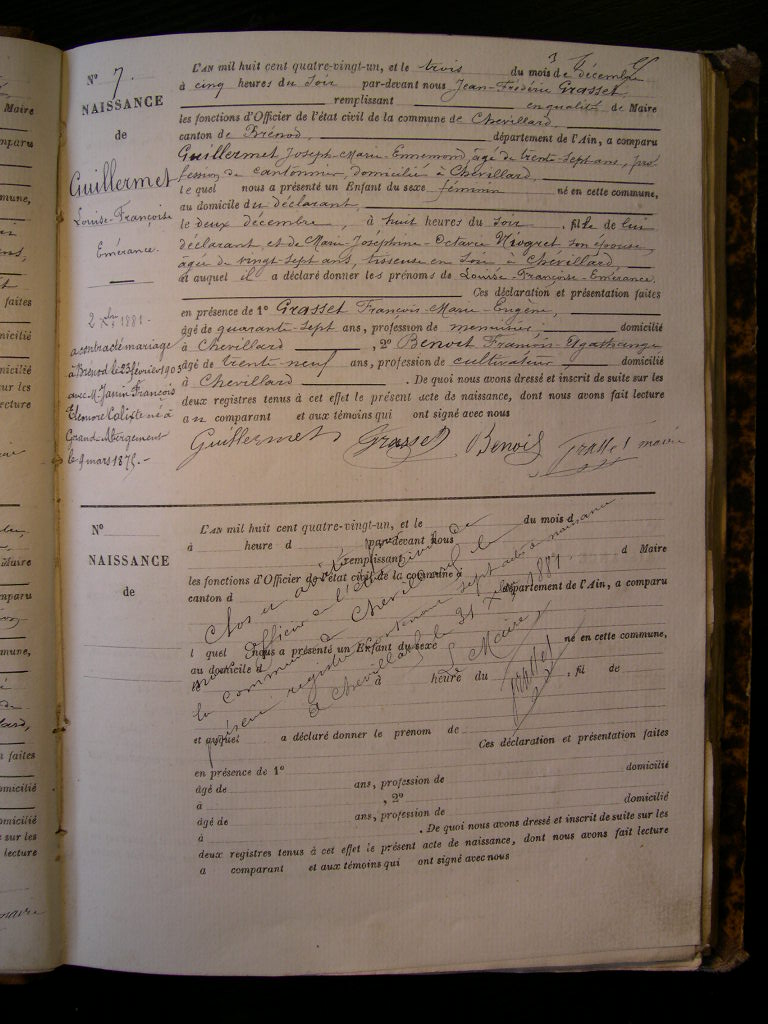 Maire
N° 7.
NAISSANCE
de
Guillermet
Louise-Françoise
Emérance.
2 Xbre 1881 -
a contracté mariage
à Brénod le 23 février 1903
avec M. Janin François
Eléonore Calixte né à
Grand-Abergement
le 9 mars 1875.-
L'AN mil huit cent quatre-vingt-un, et le trois du mois de décembre
à cinq heures du soir par-devant nous Jean-Frédéric Grasset
remplissant en qualité de Maire
les fonctions d'Officier de l'état civil de la commune de Chevillard,
canton de Brénod, département de l'Ain, a comparu
Guillermet Joseph-Marie-Ennemond, âgé de trente-sept ans, pro
fession de cantonnier, domicilié à Chevillard,
le quel nous a présenté un Enfant du sexe féminin né en cette commune,
au domicile du déclarant
le deux décembre, à huit heures du soir, fille de lui
déclarant, et de Marie-Joséphine-Octavie Niogret son épouse,
âgée de vingt-sept ans, tisseuse en soie à Chevillard
et auquel il a déclaré donner les prénoms de Louise-Françoise-Emérance.
Ces déclaration et présentation faites
en présence de 1° Grasset François-Marie-Eugène,
âgé de quarante-sept ans, profession de menuisier domicilié
à Chevillard, 2° Benoit François
âgé de trente-neuf ans, profession de cultivateur domicilié
à Chevillard. De quoi nous avons dressé et inscrit de suite sur les
deux registres tenus à cet effet le présent acte de naissance, dont nous avons fait lecture
au comparant et aux témoins qui ont signé avec nous
Guillermet Grasset Benoit Grasset maire
N°
NAISSANCE
de
L'AN mil huit cent quatre-vingt-un, et le du mois d
à heure d par-devant nous
remplissant d Maire
les fonctions d'Officier de l'état civil de la commune d
canton d département de l'Ain, a comparu
l quel nous a présenté un Enfant du sexe né en cette commune,
au domicile d
le à heure du , fil de
et auquel a déclaré donner le prenom de
Ces déclaration et présentation faites
en présence de 1°
âgé de ans, profession de domicilié
à , 2°
âgé de ans, profession de domicilié
à . De quoi nous avons dressé et inscrit de suite sur les
deux registres tenus à cet effet le présent acte de naissance, dont nous avons fait lecture
a comparant et aux témoins qui ont signé avec nous
Clos et arrêté par
nous Officier de l'état civil de
la commune de Chevillard le
présent registre contenant sept actes de naissance
à Chevillard le 31 Xbre 1881.
Le Maire,
Grasset